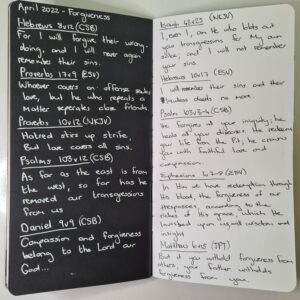 April 2022 - Forgiveness
Hebrews 8v12 (CSB)
For I will forgive their wrong-
doing, and I will never again
remember their sins.
Proverbs 17v9 (ESV)
Whoever covers an offense seeks
love, but he who repeats a
matter separates close friends.
Proverbs 10v12 (NKJV)
Hatred stirs up strife,
But love covers all sins.
Psalms 103v12 (CSB)
As far as the east is from
the west, so far has he
removed our transgressions
from us
Daniel 9v9 (CSB)
Compassion and forgiveness
belong to the Lord our
God...
Isaiah 43v25 (NKJV)
I, even I, am He who blots out
your transgressions for My own
sake; and I will not remember
your sins
Hebrews 10v17 (ESV)
I will remember their sins and their
lawless deeds no more
Psalm 103v3-4 (CSB)
He forgives all your iniquity; he
heals all your diseases. He redeems
your life from the Pit; he crowns
you with faithful love and
compassion.
Ephesians 1v7-8
In Him we have redemption through
His blood, the forgiveness of our
trespasses, according to the
riches of His grace, which he
lavished upon us, wisdom and
insight
Matthew 6v15 (TPT)
But if you withhold forgiveness from
others, your Father withholds
forgiveness from you.